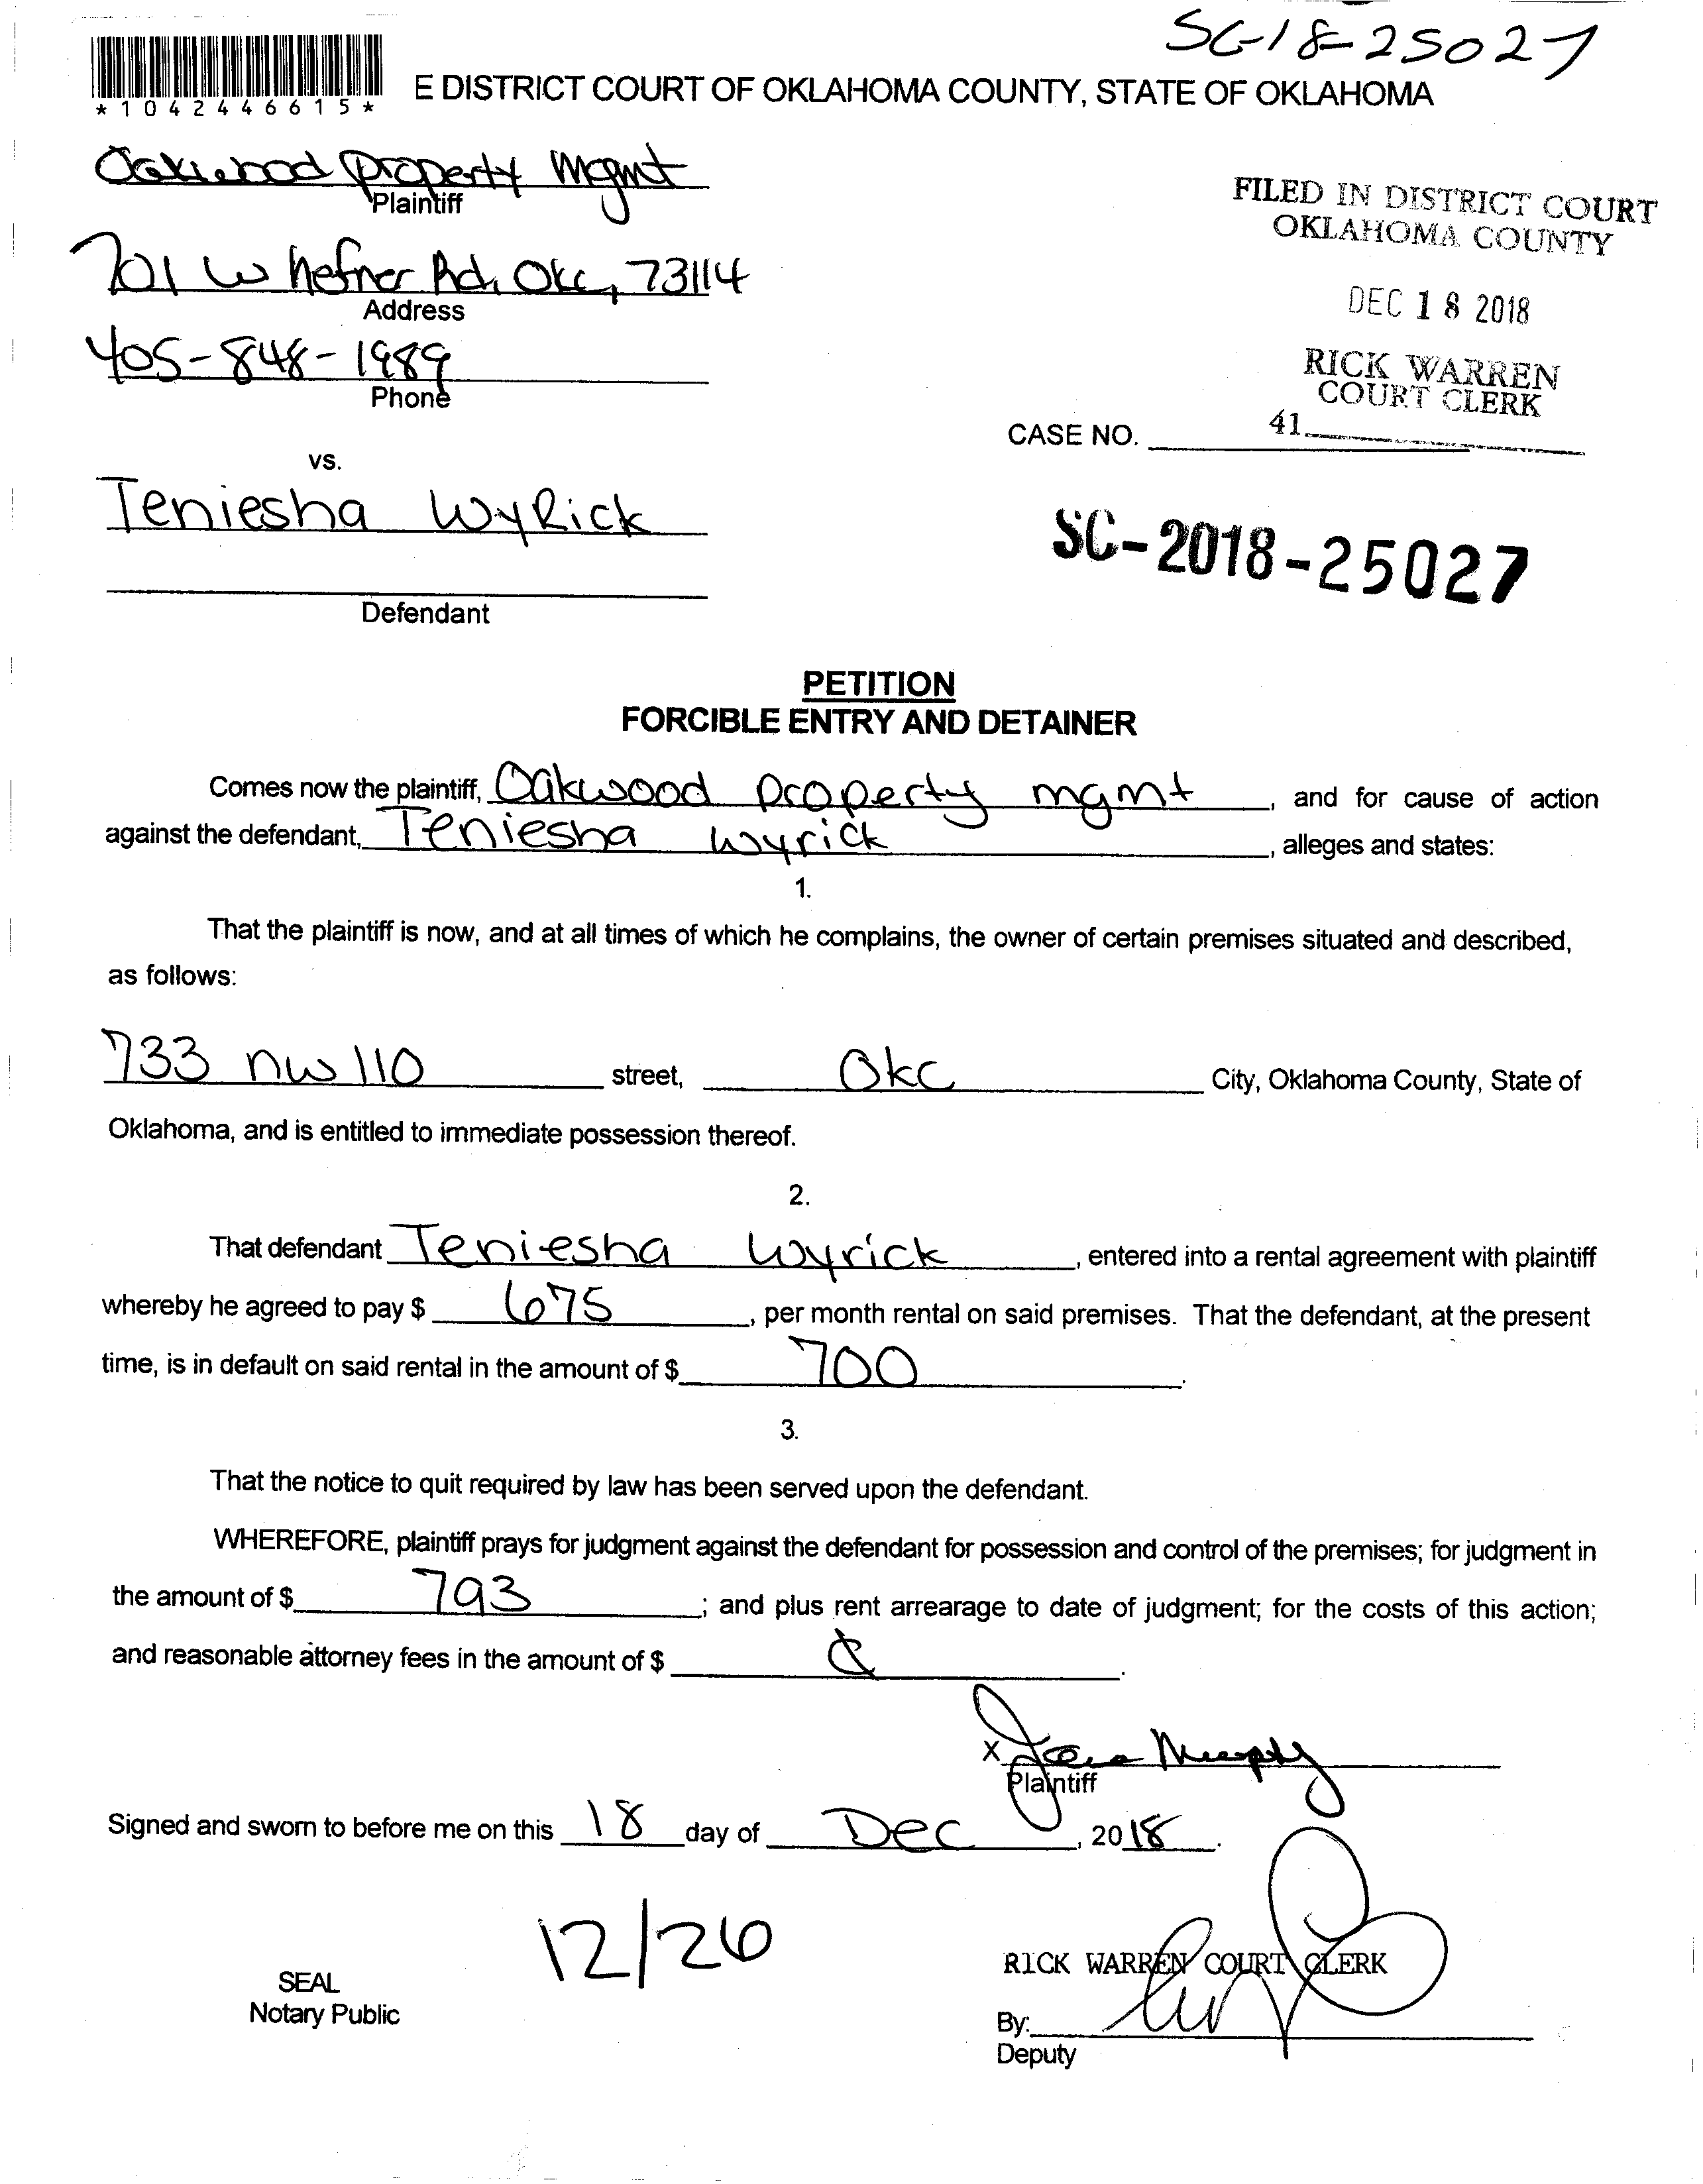 SC-18-25027
*1042446615*
E DISTRICT COURT OF OKLAHOMA COUNTY, STATE OF OKLAHOMA
Oakwood property Mgmt
Plaintiff
FILED IN DISTRICT COURT
OKLAHOMA COUNTY
701 W hefner Rd, Okc, 73114
Address
DEC 18 2018
405-848-1989
Phone
RICK WARREN
COURT CLERK
41
CASE NO.
vs.
Teniesha WyRick
SC-2018-25027
Defendant
PETITION
FORCIBLE ENTRY AND DETAINER
Comes now the plaintiff, Oakwood property mgmt, and for cause of action
against the defendant, Teniesha Wyrick, alleges and states:
1.
That the plaintiff is now, and at all times of which he complains, the owner of certain premises situated and described,
as follows:
733 nw 110 street, Okc City, Oklahoma County, State of
Oklahoma, and is entitled to immediate possession thereof.
2.
That defendant Teniesha Wyrick, entered into a rental agreement with plaintiff
whereby he agreed to pay $ 675, per month rental on said premises. That the defendant, at the present
time, is in default on said rental in the amount of $ 700.
3.
That the notice to quit required by law has been served upon the defendant.
WHEREFORE, plaintiff prays for judgment against the defendant for possession and control of the premises; for judgment in
the amount of $ 793; and plus rent arrearage to date of judgment; for the costs of this action;
and reasonable attorney fees in the amount of $ .
X Murphy
Plaintiff
Signed and sworn to before me on this 18 day of Dec, 2018.
12/26
SEAL
Notary Public
RICK WARREN COURT CLERK
By:
Deputy